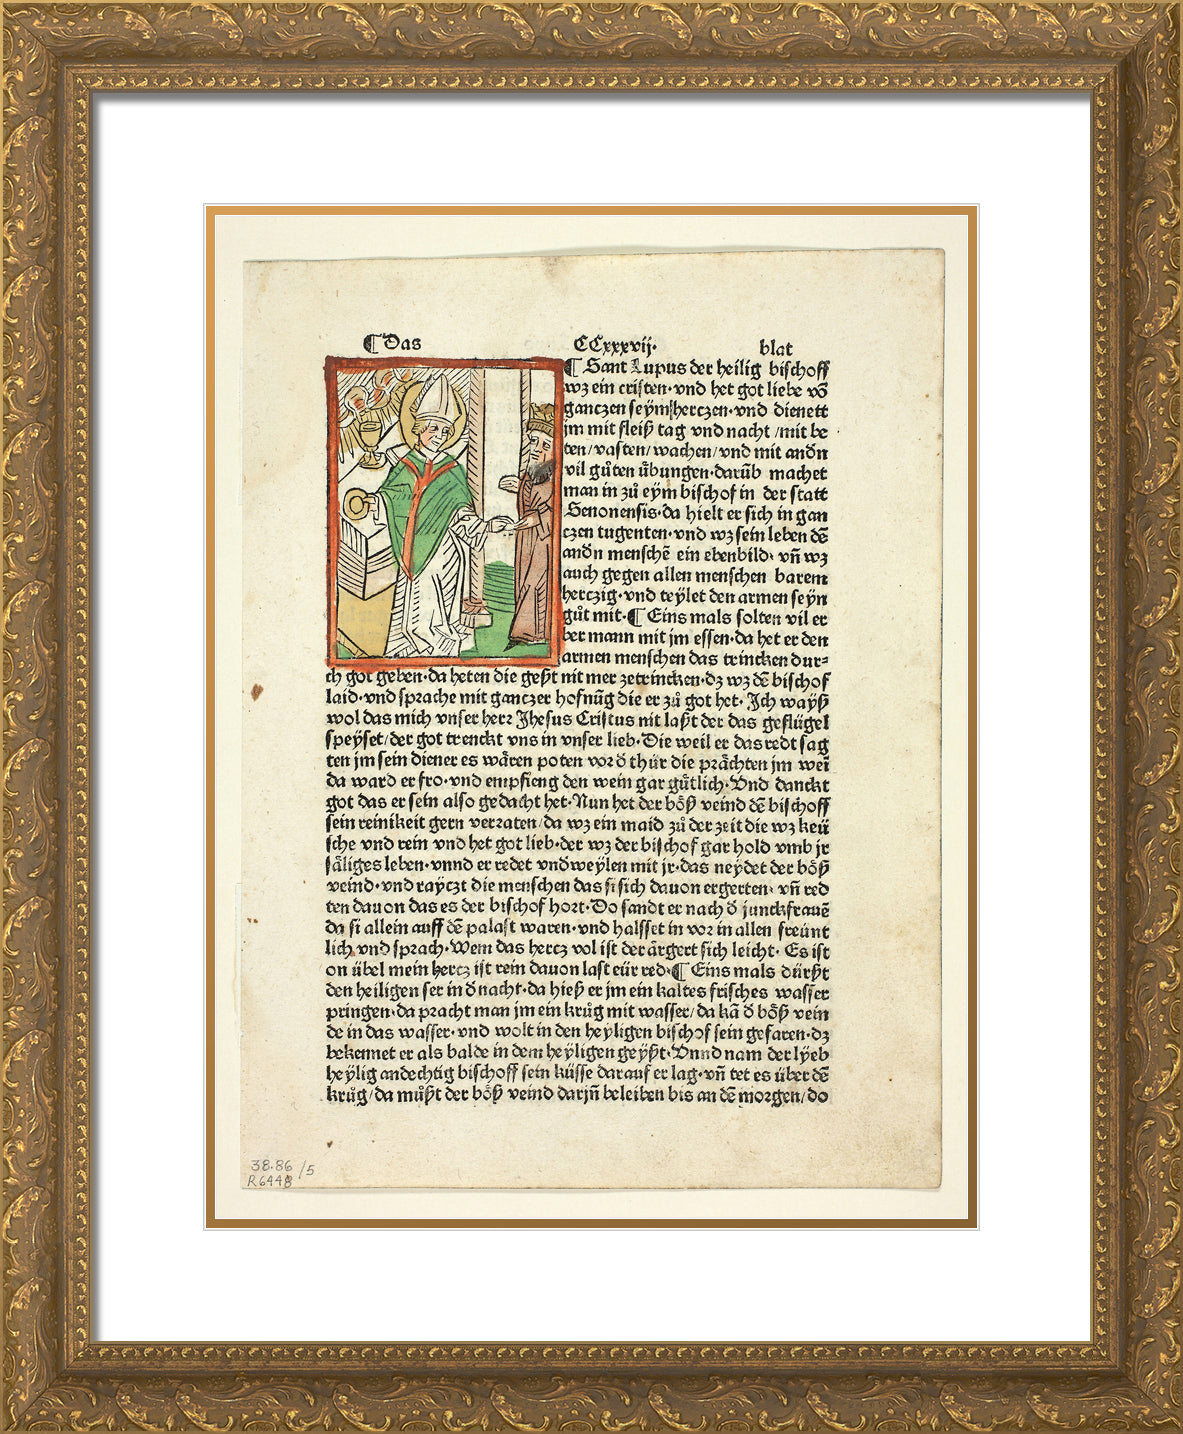 ¶ Das CCxxxvij· blat
¶ Sant Lupus der heilig bischoff
wz ein cristen·vnd het got liebe võ
ganczen seÿm herczen·vnd dienett
jm mit fleiß tag vnd nacht/mit be
ten/vasten/wachen/vnd mit andn
vil gůten übungen·darüb machet
man in zů eÿm bischof in der statt
Senonensis·da hielt er sich in gan
czen tugenten·vnd wz sein leben dē
andn menschē ein ebenbild·vñ wz
auch gegen allen menschen barem
herczig·vnd teÿlet den armen seÿn
gůt mit·¶ Eins mals solten vil er
ber mann mit jm essen·da het er den
armen menschen das trincken dur-
ch got geben·da heten die geßt nit mer zetrincken·dz wz dē bischof
laid·vnd sprache mit ganczer hofnūg die er zů got het·Ich waÿß
wol das mich vnser herr Jhesus Cristus nit laßt der das geflügel
speÿset/der got trenckt vns in vnser lieb·Die weil er das redt sag
ten jm sein diener es wären poten vor d thür die prächten jm wei
da ward er fro·vnd empfieng den wein gar gütlich·Vnd danckt
got das er sein also gedacht het·Nun het der böß veind dē bischoff
sein reinikeit gern verraten/da wz ein maid zů der zeit die wz keü
sche vnd rein vnd het got lieb·der wz der bischof gar hold vmb jr
säliges leben·vnnd er redet vndweÿlen mit jr·das neÿdet der böß
veind·vnd raÿczt die menschen das si sich dauon ergerten·vñ red
ten dauon das es der bischof hort·Do sandt er nach d junckfrauē
da si allein auff dē palast waren·vnd halsset in vor in allen freünt
lich vnd sprach·Wem das hercz vol ist der ärgert sich leicht·Es ist
on übel mein hercz ist rein dauon last eür red·¶ Eins mals dürßt
den heiligen ser in d nacht·da hieß er jm ein kaltes frisches wasser
pringen·da pracht man jm ein krůg mit wasser/da kā d böß vein
de in das wasser·vnd wolt in den heÿligen bischof sein gefaren·dz
bekennet er als balde in dem heÿligen geÿßt·Vnnd nam der lÿeb
heÿlig andechtig bischoff sein küsse darauf er lag·vñ tet es über dē
krůg/da můßt der böß veind darjñ beleiben bis an dē morgen/do
38.86/5
R6448